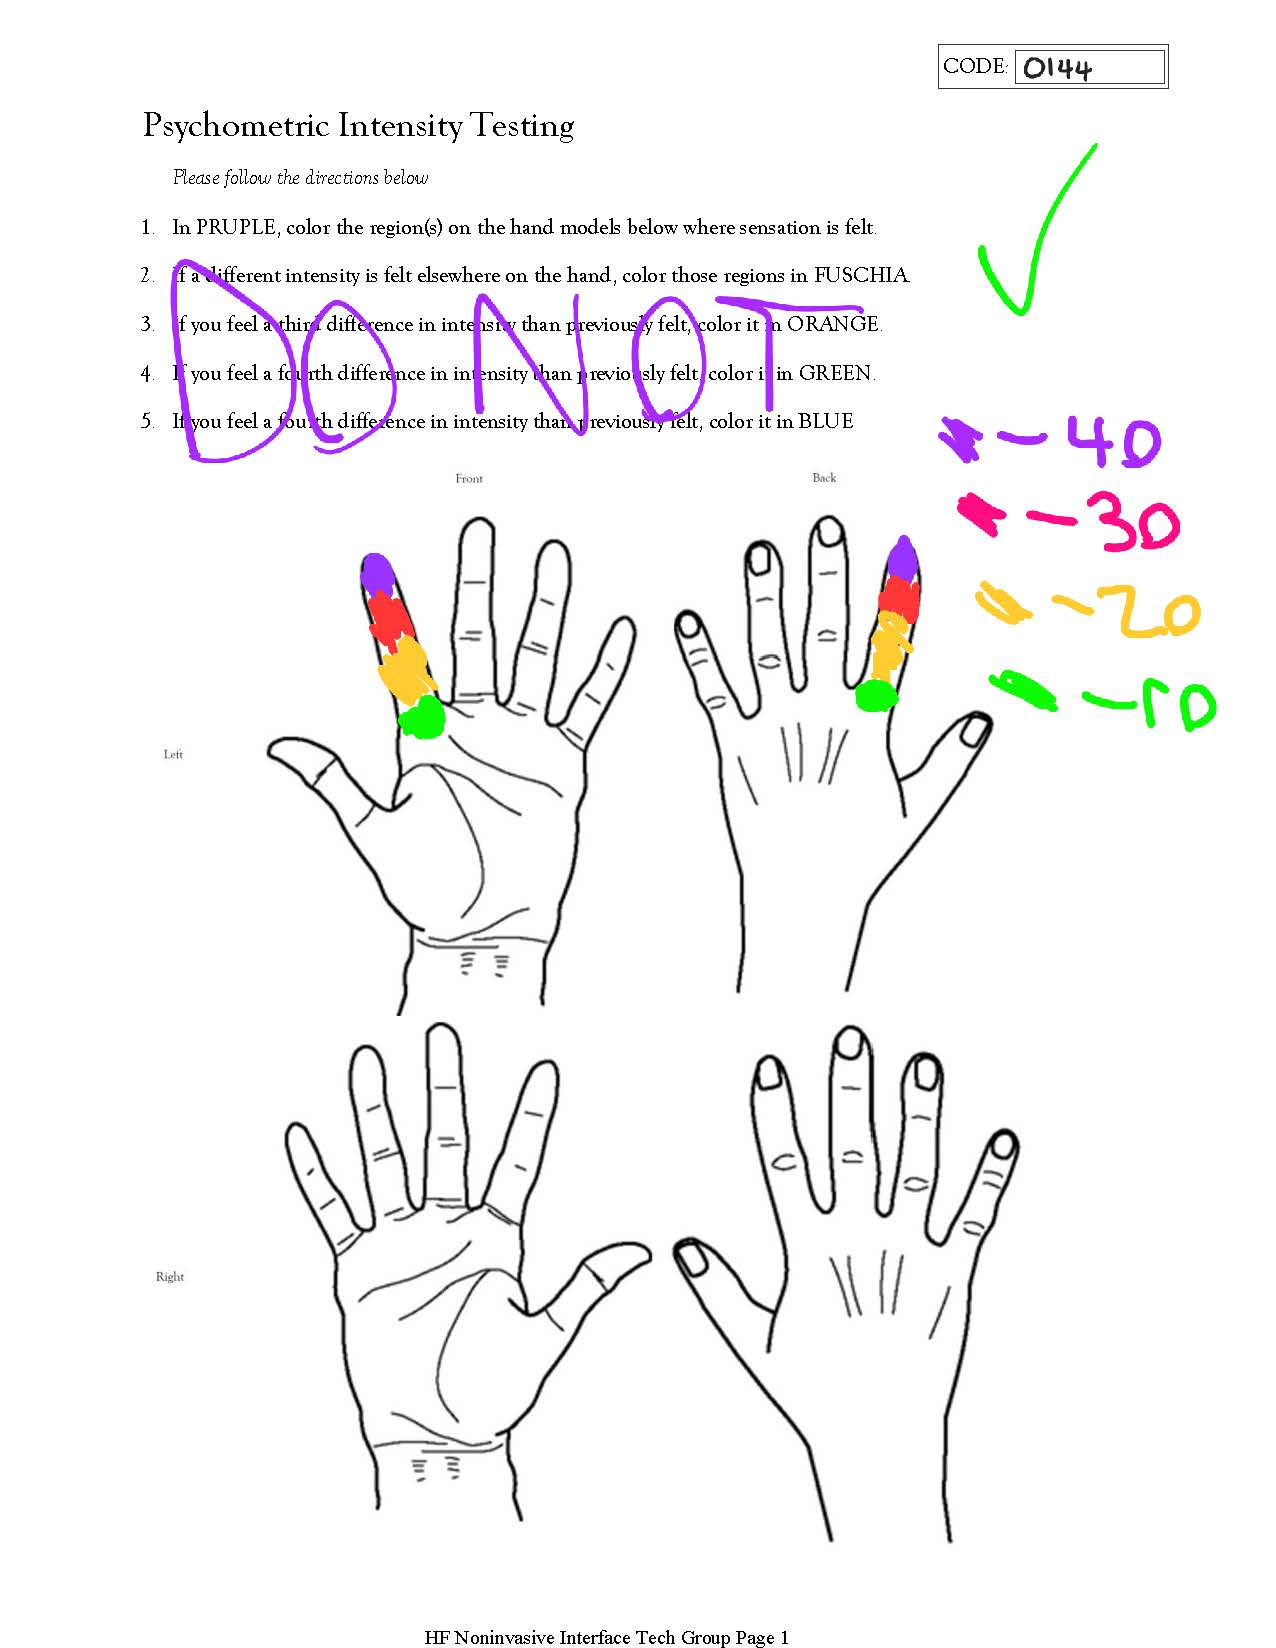 CODE: 0144
Psychometric Intensity Testing
Please follow the directions below
1. In PRUPLE, color the region(s) on the hand models below where sensation is felt.
2. If a different intensity is felt elsewhere on the hand, color those regions in FUSCHIA.
3. If you feel a third difference in intensity than previously felt, color it in ORANGE.
4. If you feel a fourth difference in intensity than previously felt, color it in GREEN.
5. If you feel a fourth difference in intensity than previously felt, color it in BLUE
DO NOT
- 40
- 30
- 20
- 10
Front Back
Left
Right
HF Noninvasive Interface Tech Group Page 1